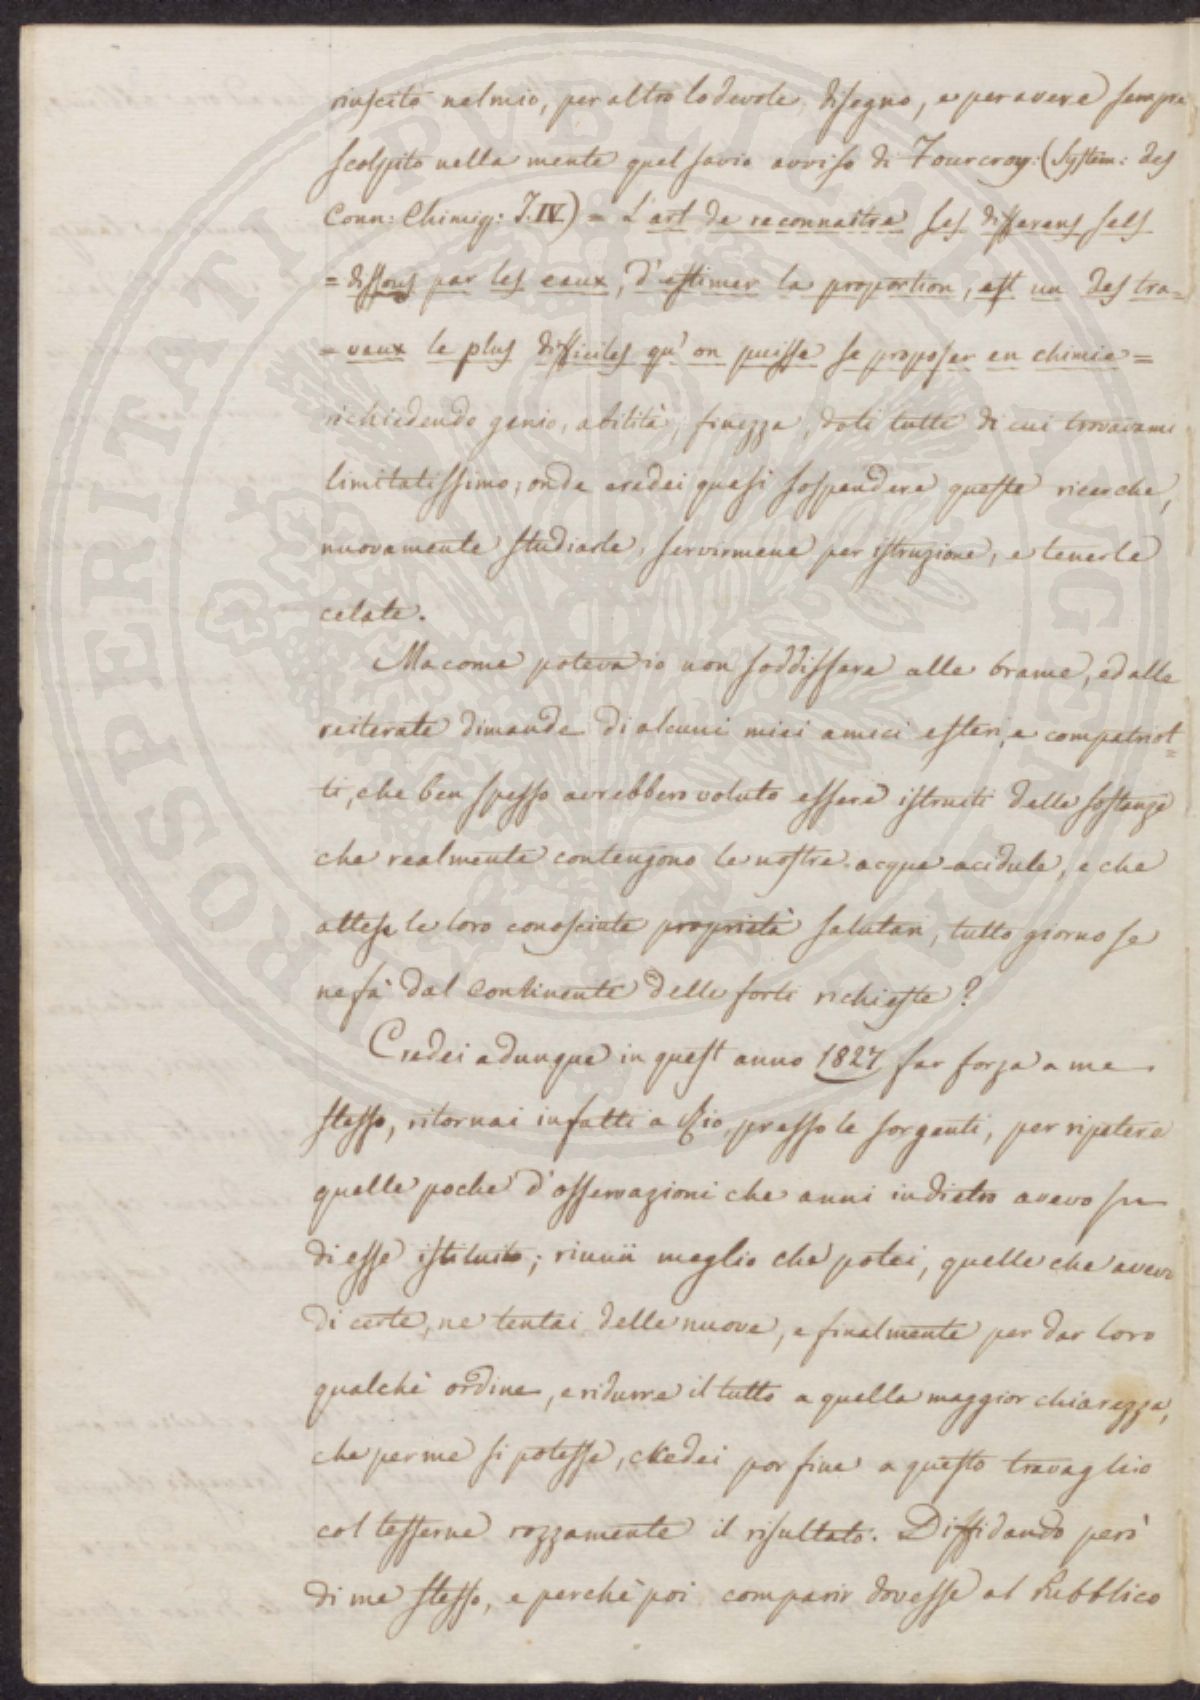 riuscito nel mio, per altro lodevole, disegno, e per avere sempre
scolpito nella mente quel savio avviso di Fourcroy: (System: des
Conn: Chimiq: T. IV) = L'art de reconnaitre les differens sels
= dissous par les eaux, d'estimer la proportion, est un des tra=
= vaux le plus difficiles qu'on puisse se proposer en chimie =
richiedendo genio, abilità, finezza, doti tutte di cui trovavami
limitatissimo; onde credei quasi sospendere queste ricerche,
nuovamente studiarle, servirmene per istruzione, e tenerle
celate.
Ma come poteva io non soddisfare alle brame, ed alle
reiterate dimande di alcuni miei amici esteri, e compatriot=
ti, che ben spesso avrebbero voluto essere istruiti delle sostanze
che realmente contengono le nostre acque acidule, e che
attese le loro conosciute proprietà salutari, tutto giorno se
ne fà dal Continente delle forti richieste?
Credei adunque in quest anno 1827 far forza a me
stesso, ritornai infatti a Rio, presso le sorgenti, per ripetere
quelle poche d'osservazioni che anni indietro avevo su
di esse istituito; riunii meglio che potei, quelle che avevo
di certe, ne tentai delle nuove, e finalmente per dar loro
qualchè ordine, e ridurre il tutto a quella maggior chiarezza,
che per me si potesse, credei por fine a questo travaglio
col tesserne rozzamente il risultato. Diffidando però
di me stesso, e perchè poi comparir dovesse al Pubblico
PROSPERITATI PUBLICAE AUGENDAE